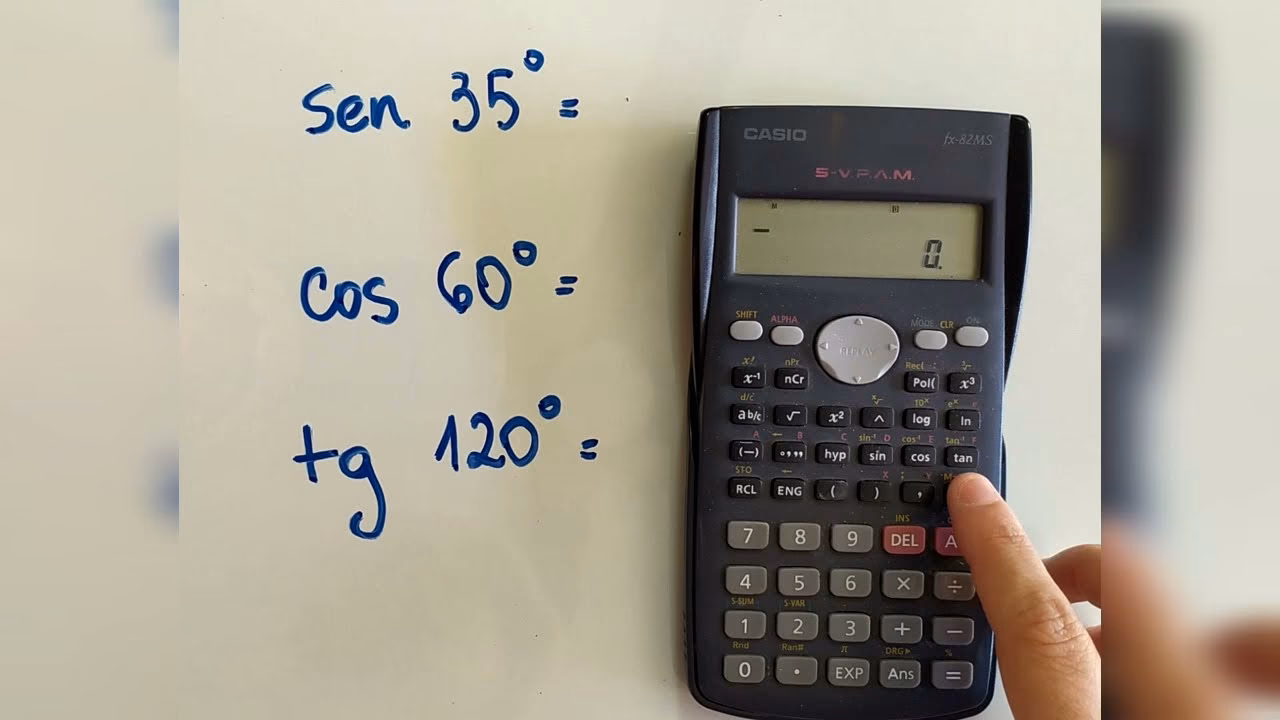 sen 35° =
cos 60° =
tg 120° =
CASIO fx-82MS
S-V.P.A.M.
M D
–
0.
SHIFT ALPHA MODE CLR ON
REPLAY
x! nPr Rec( :
x⁻¹ nCr Pol( x³
d/c 10ˣ eˣ e
a b/c √ x² ^ log ln
A ← B C sin⁻¹ D cos⁻¹ E tan⁻¹ F
(−) °,,, hyp sin cos tan
STO ← X ; Y
RCL ENG ( ) ,
INS
7 8 9 DEL A
4 5 6 × ÷
S-SUM S-VAR
1 2 3 + −
Rnd Ran# π DRG▸ %
0 . EXP Ans =